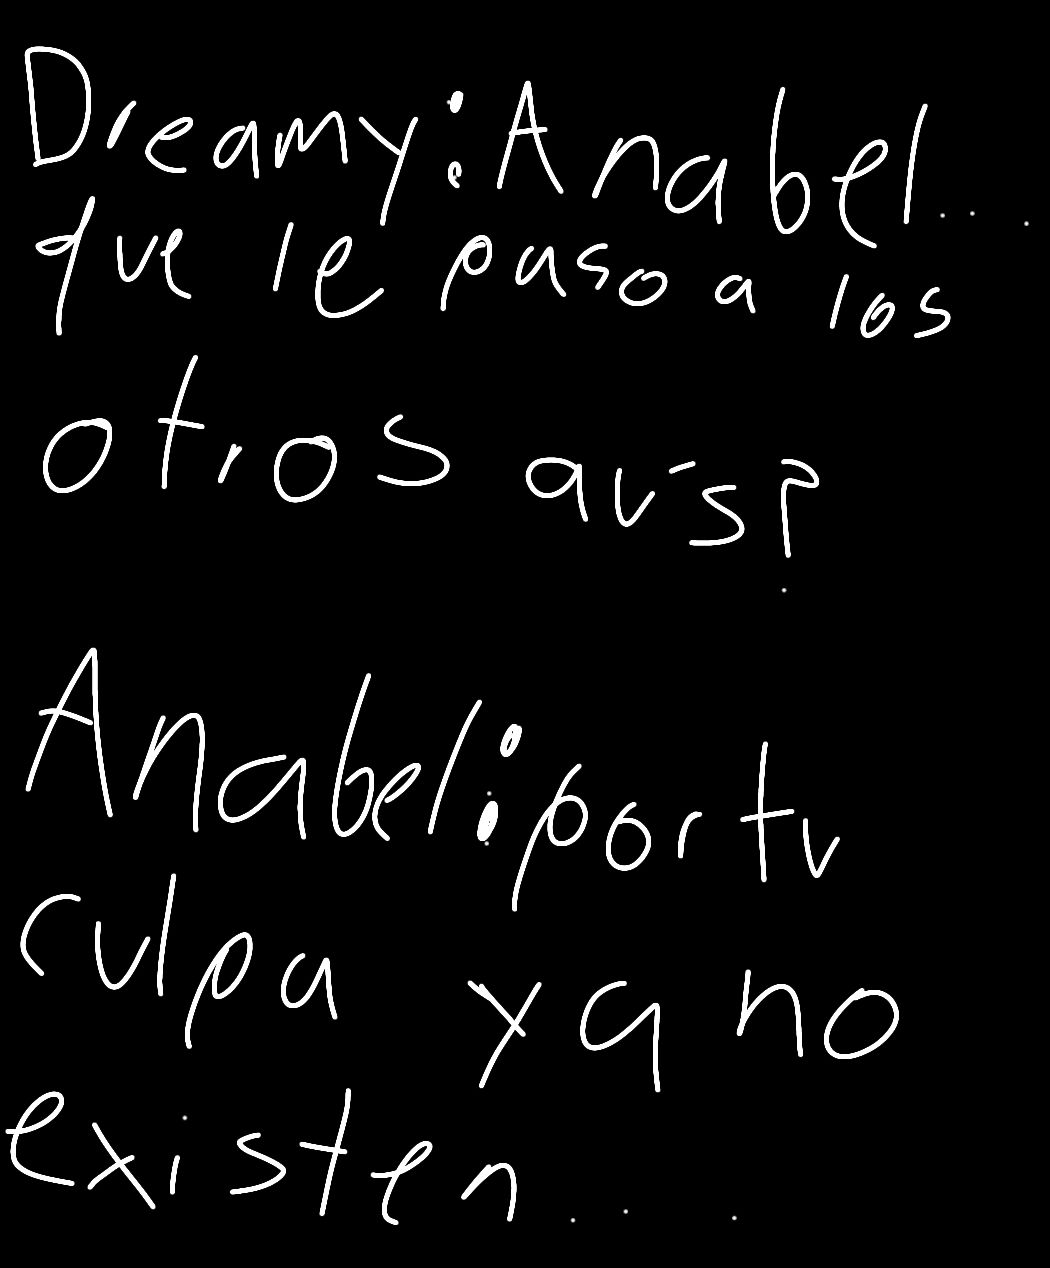 Dreamy: Anabel...
que le paso a los
otros au's?
Anabel: por tu
culpa ya no
existen...